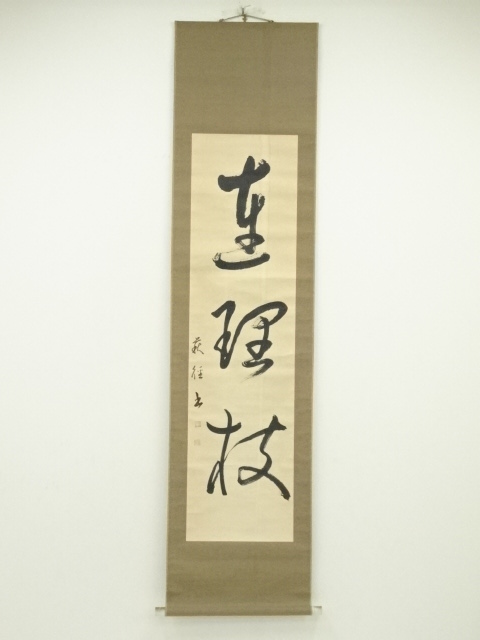 連理枝